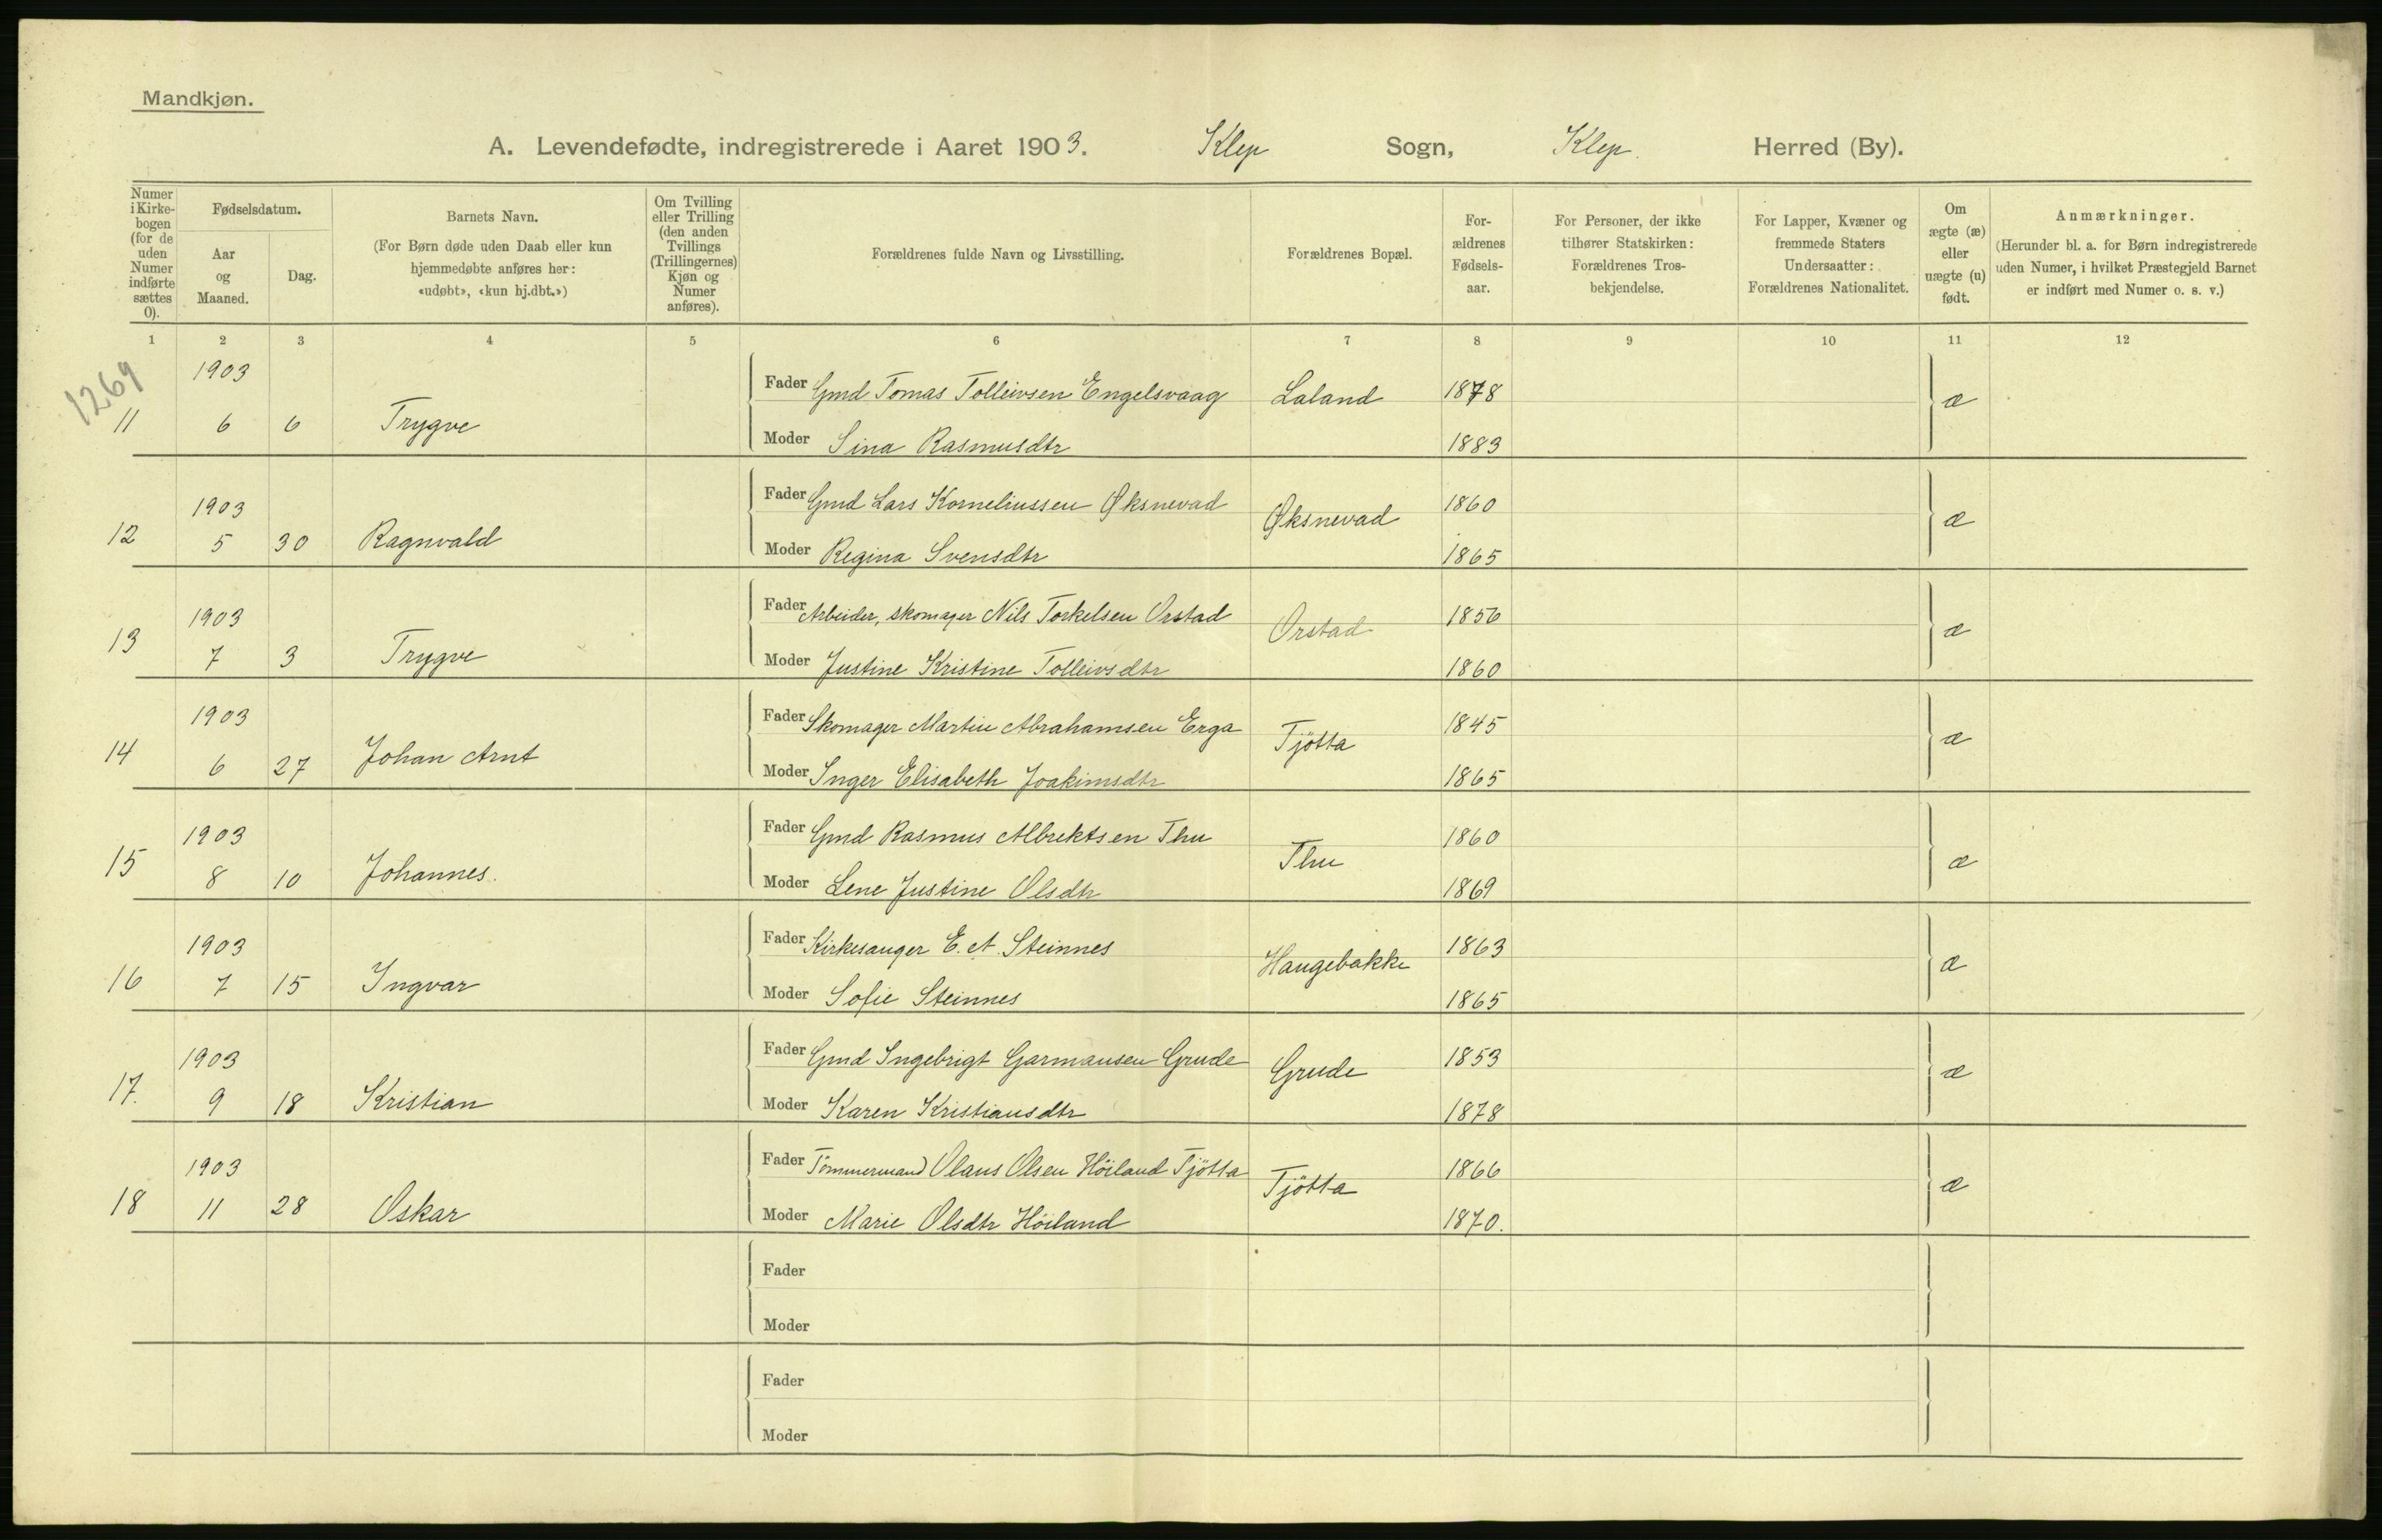 Mandkjøn.
A. Levendefødte, indregistrerede i Aaret 1903. Klep Sogn, Klep. Herred (By).
Numer i Kirke-bogen (for de uden Numer indførte sættes 0).
Fødselsdatum.
Aar og Maaned.
Dag.
Barnets Navn.
(For Børn døde uden Daab eller kun hjemmedøbte anføres her: «udøbt», «kun hj.dbt.»)
Om Tvilling eller Trilling (den anden Tvillings (Trillingernes) Kjøn og Numer anføres).
Forældrenes fulde Navn og Livsstilling.
Forældrenes Bopæl.
For-ældrenes Fødsels-aar.
For Personer, der ikke tilhører Statskirken: Forældrenes Tros-bekjendelse.
For Lapper, Kvæner og fremmede Staters Undersaatter: Forældrenes Nationalitet.
Om ægte (æ) eller uægte (u) født.
Anmærkninger.
(Herunder bl. a. for Børn indregistrerede uden Numer, i hvilket Præstegjeld Barnet er indført med Numer o. s. v.)
1 2 3 4 5 6 7 8 9 10 11 12
1269
1903
Fader Gmd Tomas Tolleivsen Engelsvaag Laland 1878 æ
11 6 6 Trygve
Moder Sina Rasmusdtr 1883
1903
Fader Gmd Lars Korneliussen Øksnevad Øksnevad 1860 æ
12 5 30 Ragnvald
Moder Regina Svensdtr 1865
1903
Fader Arbeider, skomager Nils Torkelsen Orstad Orstad 1856 æ
13 7 3 Trygve
Moder Justine Kristine Tolleivsdtr 1860
1903
Fader Skomager Martin Abrahamsen Erga Tjötta 1845 æ
14 6 27 Johan Arnt
Moder Inger Elisabeth Joakimsdtr 1865
1903
Fader Gmd Rasmus Albrektsen Thu Thu 1860 æ
15 8 10 Johannes.
Moder Lene Justine Olsdtr 1869
1903
Fader Kirkesanger E. A. Steinnes Haugebakke 1863 æ
16 7 15 Ingvar
Moder Sofie Steinnes 1865
1903
Fader Gmd Ingebrigt Garmansen Grude Grude 1853 æ
17. 9 18 Kristian
Moder Karen Kristiansdtr 1878
1903
Fader Tömmermand Olaus Olsen Höiland Tjötta Tjötta 1866 æ
18 11 28 Oskar
Moder Marie Olsdtr Höiland 1870.
Fader
Moder
Fader
Moder